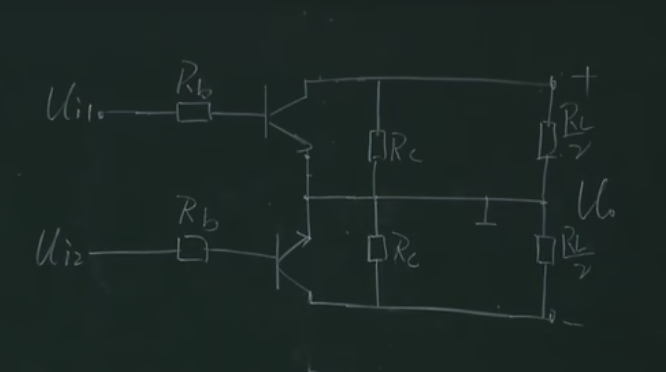 +
Rb
Ui1
Rc
RL/2
Uo
Rb
Ui2
Rc
RL/2
-